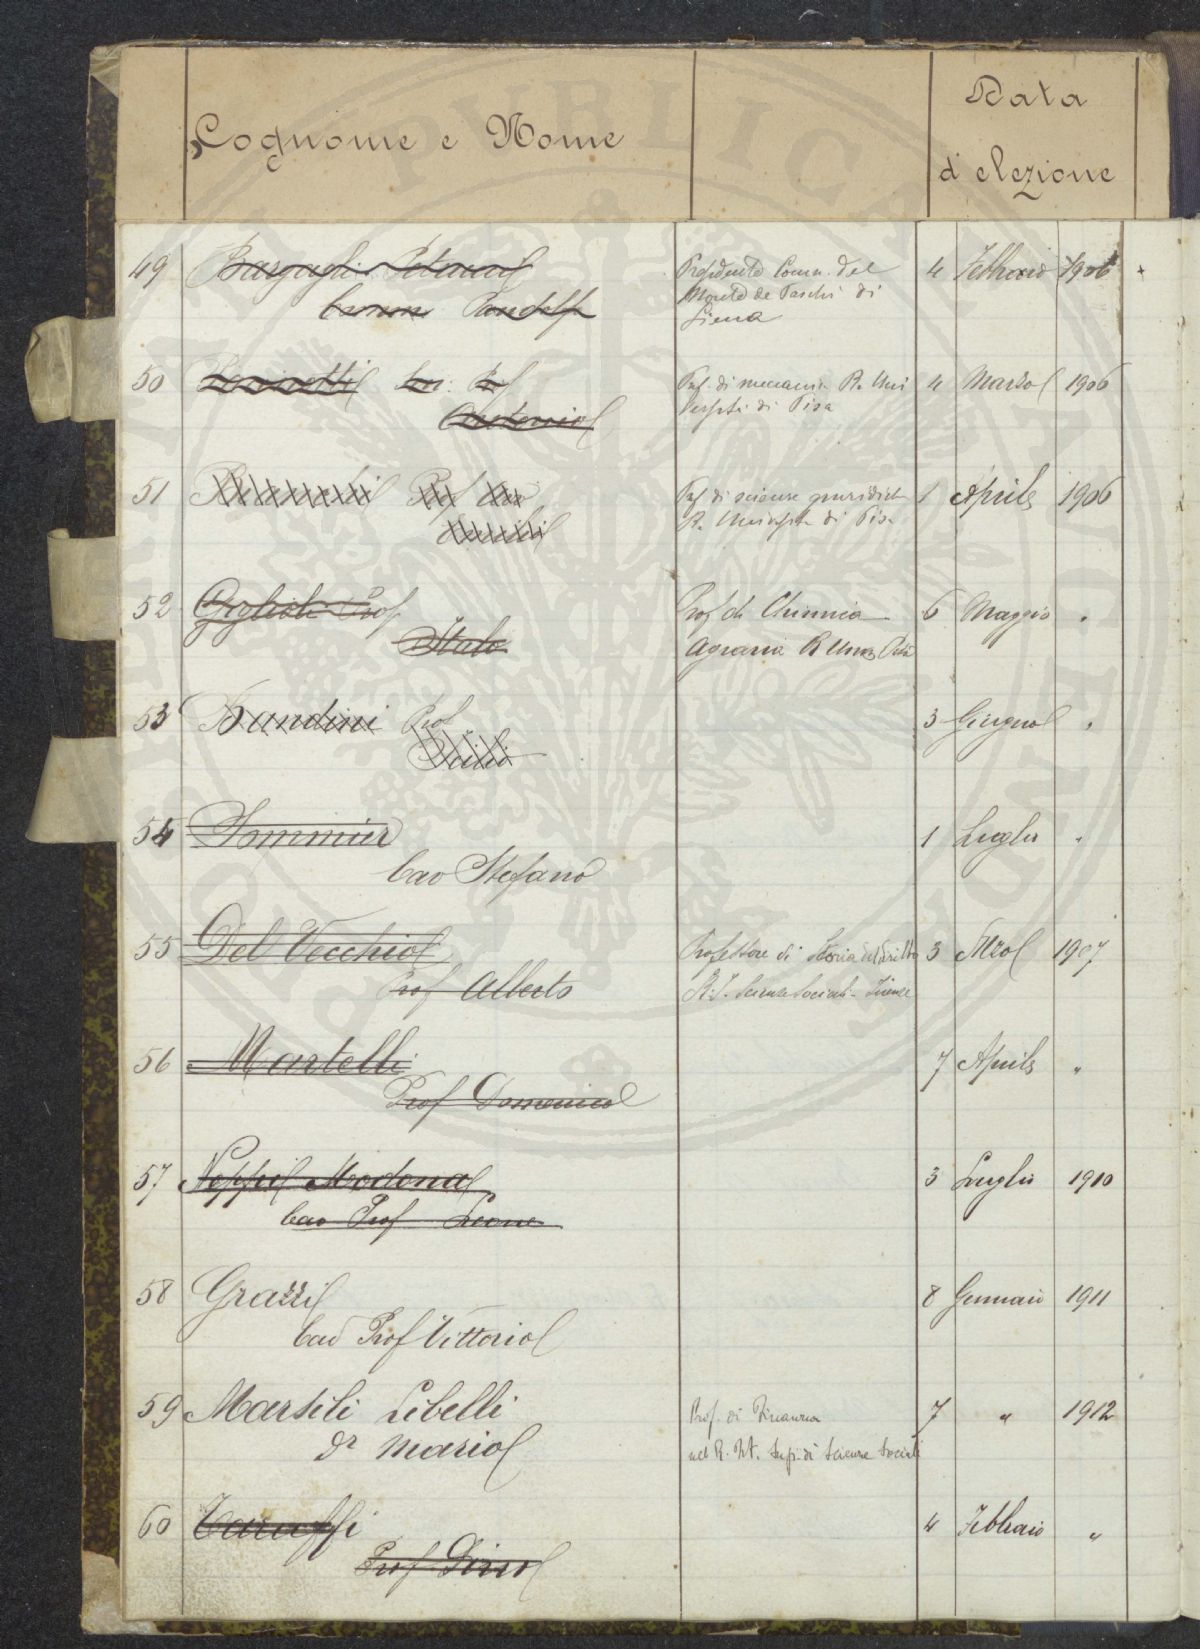 Cognome e Nome
Data
d'elezione
49 Bargagli Petrucci Presidente Comm. del 4 Febbraio 1906 +
Pandolfo Monte de Paschi di
Siena
50 Prof. di meccanica R. Uni 4 Marzo 1906
Antonio versità di Pisa
51 Prof Prof di scienze giuridiche 1 Aprile 1906
R. Università di Pisa
52 Giglioli Prof Prof di Chimica 6 Maggio "
Italo Agraria R Univ Pisa
53 Bandini Prof 3 Giugno "
54 Sommier 1 Luglio "
Cav Stefano
55 Del Vecchio Professore di Storia del Diritto 3 1907
Prof Alberto R. I. Scienze Sociali - Firenze
56 Martelli 7 Aprile "
Prof Domenico
57 Neppi Modona 3 Luglio 1910
Cav Prof Leone
58 Grazzi 8 Gennaio 1911
Cav Prof Vittorio
59 Marsili Libelli Prof. di Finanza 7 " 1912
Dr Mario nel R. Ist. Sup. di Scienze Sociali
60 Taruffi 4 Febbraio "
Prof Dino